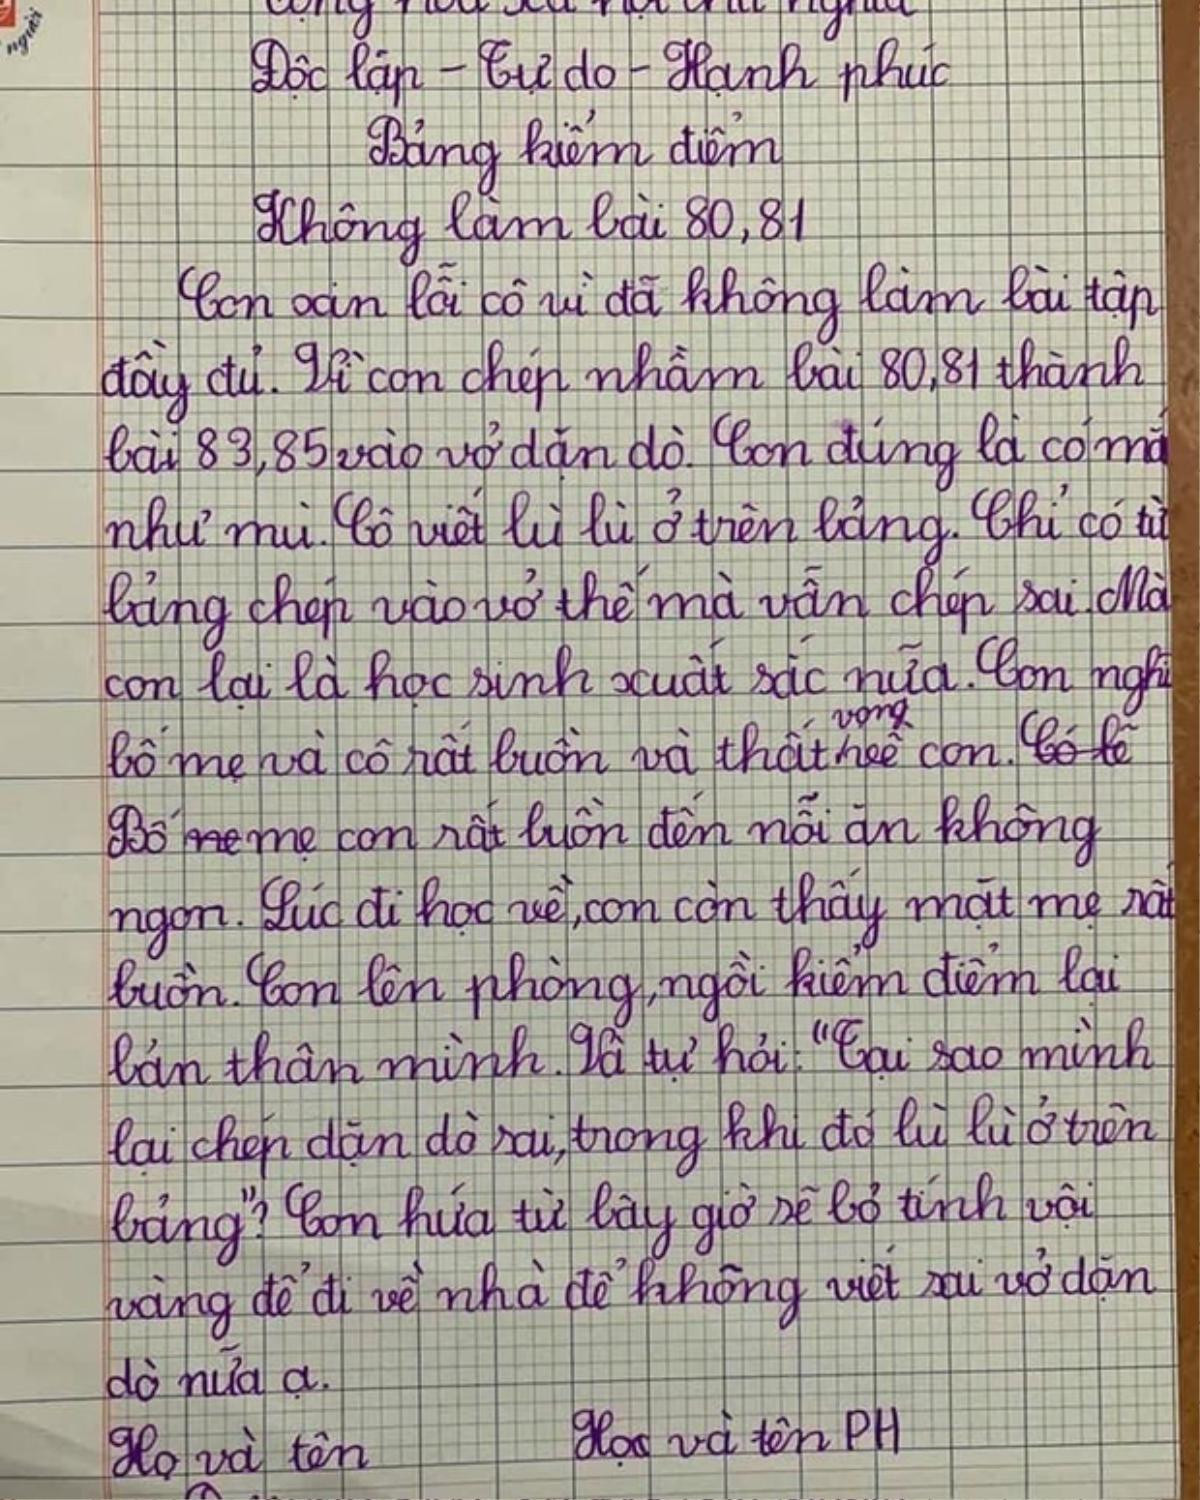 người
Cộng hòa xã hội chủ nghĩa
Độc lập - Tự do - Hạnh phúc
Bảng kiểm điểm
Không làm bài 80, 81
Con xin lỗi cô vì đã không làm bài tập
đầy đủ. Vì con chép nhầm bài 80,81 thành
bài 83,85 vào vở dặn dò. Con đúng là có mắ
như mù. Cô viết lù lù ở trên bảng. Chỉ có từ
bảng chép vào vở thế mà vẫn chép sai. Mà
con lại là học sinh xuất sắc nữa. Con nghĩ
bố mẹ và cô rất buồn và thất vọng về con. Có lẽ
Bố me mẹ con rất buồn đến nỗi ăn không
ngon. Lúc đi học về, con còn thấy mặt mẹ rất
buồn. Con lên phòng, ngồi kiểm điểm lại
bản thân mình. Và tự hỏi: "Tại sao mình
lại chép dặn dò sai, trong khi đó lù lù ở trên
bảng"? Con hứa từ bây giờ sẽ bỏ tính vội
vàng để đi về nhà để không viết sai vở dặn
dò nữa ạ.
Họ và tên Họ và tên PH